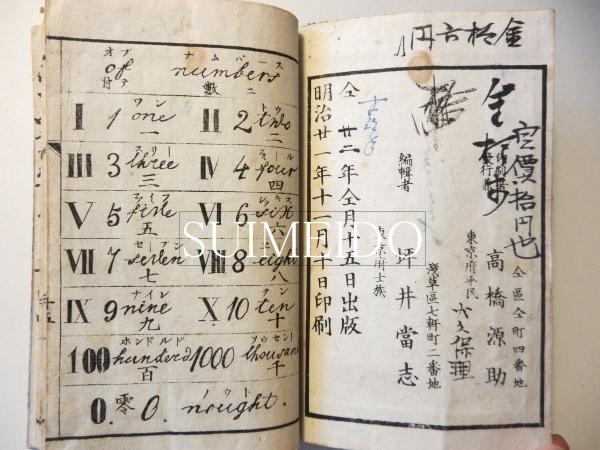 オブ ナムバース
of numbers
付テ 數 ニ
ワン トウ
I 1 one II 2 two
一 二
スリー フォール
III 3 three IV 4 four
三 四
V 5 five VI 6 six
五 六
セーブン
VII 7 seven VIII 8 eight
七 八
ナイン テン
IX 9 nine X 10 ten
九 十
ホンドルド
100 hundred 1000 thousand
百 千
ノウト
0. 零 0. nought.
金拾六円
定價八拾円也
印刷兼發行者
仝區仝町四番地
高橋源助
東京府平民
大久保理
淺草區七軒町二番地
編輯者
坪井當志
東京府士族
仝廿二年仝月十五日出版
明治廿一年十二月十日印刷
SUIMEIDO